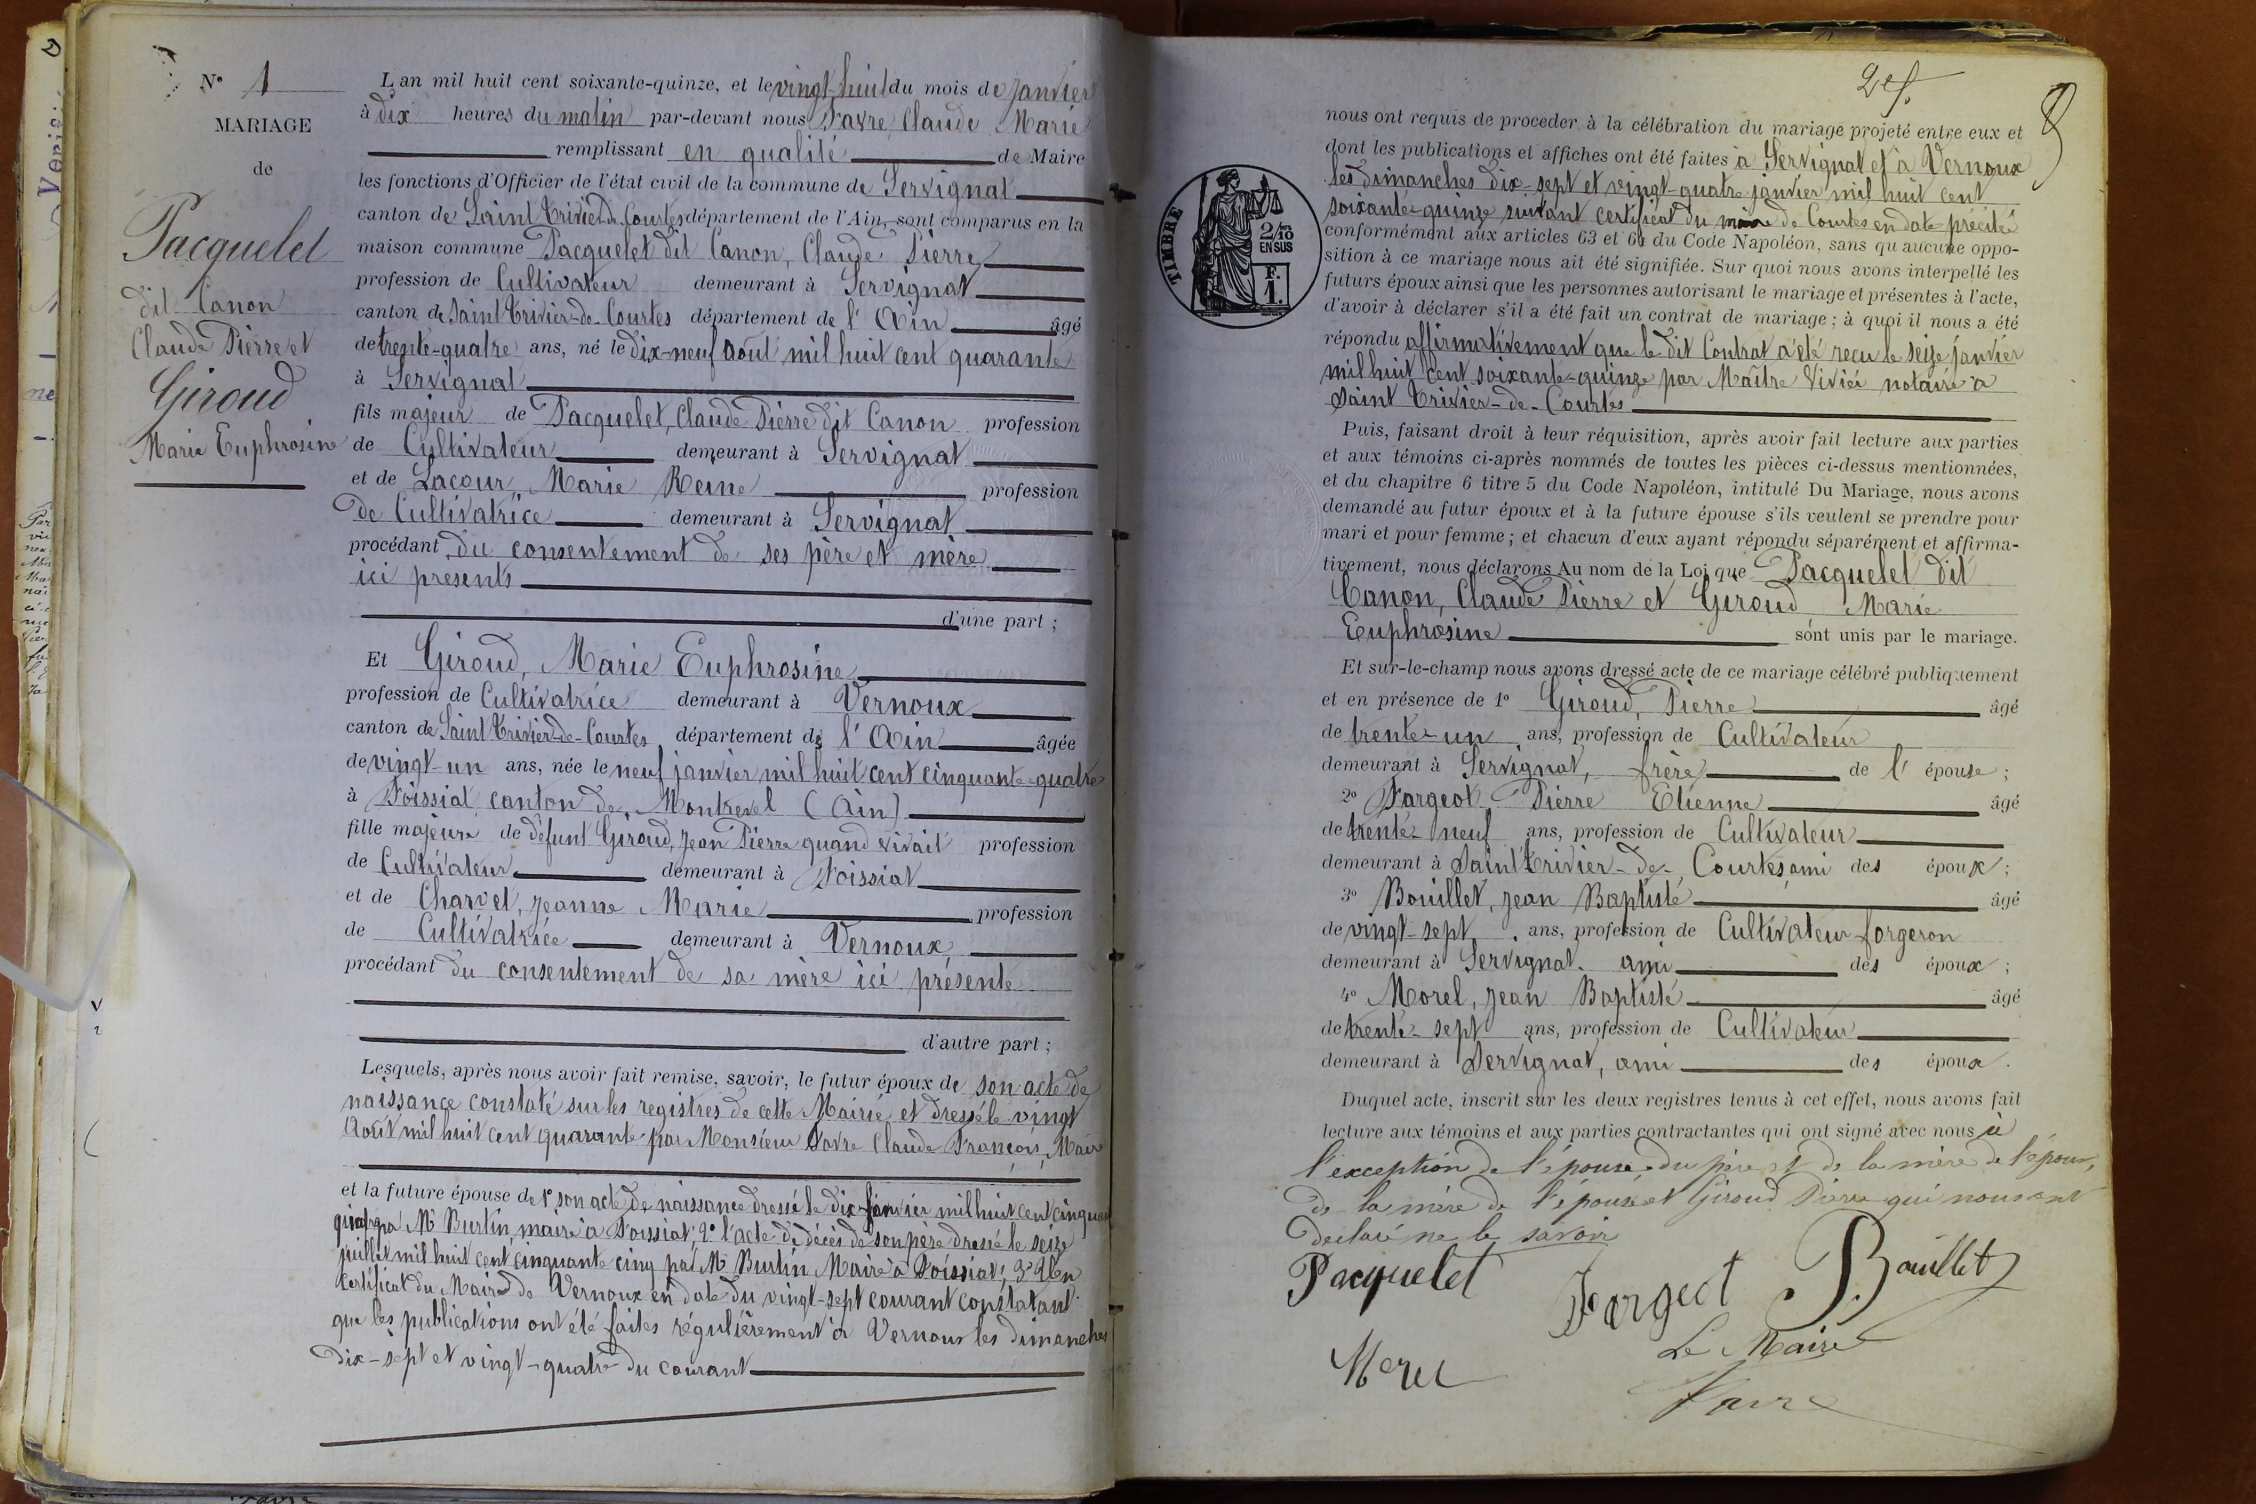 N° 1
MARIAGE
de
Pacquelet
dit Canon
Claude Pierre et
Giroud
Marie Euphrosine
L'an mil huit cent soixante-quinze, et le vingt-huit du mois de janvier
à dix heures du matin par-devant nous Favre, Claude Marie
remplissant en qualité de Maire
les fonctions d'Officier de l'état civil de la commune de Servignat
canton de Saint Trivier-de-Courtes département de l'Ain, sont comparus en la
maison commune Pacquelet dit Canon, Claude Pierre
profession de Cultivateur demeurant à Servignat
canton de Saint Trivier-de-Courtes département de l'Ain âgé
de trente-quatre ans, né le dix-neuf août mil huit cent quarante
à Servignat
fils majeur de Pacquelet, Claude Pierre dit Canon profession
de Cultivateur demeurant à Servignat
et de Lacour, Marie Reine profession
de Cultivatrice demeurant à Servignat
procédant du consentement de ses père et mère
ici presents
d'une part ;
Et Giroud, Marie Euphrosine
profession de Cultivatrice demeurant à Vernoux
canton de Saint Trivier-de-Courtes département de l'Ain âgée
de vingt-un ans, née le neuf janvier mil huit cent cinquante-quatre
à Foissiat canton de Montrevel (Ain)
fille majeure de défunt Giroud, Jean Pierre quand vivait profession
de Cultivateur demeurant à Foissiat
et de Charvet, Jeanne Marie profession
de Cultivatrice demeurant à Vernoux
procédant du consentement de sa mère ici présente
d'autre part ;
Lesquels, après nous avoir fait remise, savoir, le futur époux de son acte de
naissance constaté sur les registres de cette Mairie et dressé le vingt
août mil huit cent quarante par Monsieur Favre Claude François, Maire
et la future épouse de 1° son acte de naissance dressé le dix janvier mil huit cent cinquante
quatre par Mr Burtin, maire à Foissiat; 2° l'acte de décès de son père dressé le seize
juillet mil huit cent cinquante cinq par Mr Burtin Maire à Foissiat; 3° Un
Certificat du Maire de Vernoux en date du vingt-sept courant constatant
que les publications ont été faites régulièrement à Vernoux les dimanches
dix-sept et vingt-quatre du courant
2ef.
8
TIMBRE
2/10
EN SUS
F.
1.
nous ont requis de proceder à la célébration du mariage projeté entre eux et
dont les publications et affiches ont été faites à Servignat et à Vernoux
les dimanches dix-sept et vingt-quatre janvier mil huit cent
soixante-quinze suivant certificat du maire de Courtes en date précitée
conformément aux articles 63 et 64 du Code Napoléon, sans qu'aucune oppo-
sition à ce mariage nous ait été signifiée. Sur quoi nous avons interpellé les
futurs époux ainsi que les personnes autorisant le mariage et présentes à l'acte,
d'avoir à déclarer s'il a été fait un contrat de mariage ; à quoi il nous a été
répondu affirmativement que le dit Contrat a été reçu le seize janvier
mil huit cent soixante-quinze par Maître Vivier notaire à
Saint Trivier-de-Courtes
Puis, faisant droit à leur réquisition, après avoir fait lecture aux parties
et aux témoins ci-après nommés de toutes les pièces ci-dessus mentionnées,
et du chapitre 6 titre 5 du Code Napoléon, intitulé Du Mariage, nous avons
demandé au futur époux et à la future épouse s'ils veulent se prendre pour
mari et pour femme ; et chacun d'eux ayant répondu séparément et affirma-
tivement, nous déclarons Au nom de la Loi que Pacquelet dit
Canon, Claude Pierre et Giroud Marie
Euphrosine sont unis par le mariage.
Et sur-le-champ nous avons dressé acte de ce mariage célébré publiquement
et en présence de 1° Giroud, Pierre âgé
de trente-un ans, profession de Cultivateur
demeurant à Servignat, frère de l'épouse ;
2° Fargeot, Pierre Etienne âgé
de trente-neuf ans, profession de Cultivateur
demeurant à Saint Trivier-de-Courtes, ami des époux ;
3° Bouillet, Jean Baptiste âgé
de vingt-sept ans, profession de Cultivateur forgeron
demeurant à Servignat ami des époux ;
4° Morel, Jean Baptiste âgé
de trente-sept ans, profession de Cultivateur
demeurant à Servignat, ami des époux.
Duquel acte, inscrit sur les deux registres tenus à cet effet, nous avons fait
lecture aux témoins et aux parties contractantes qui ont signé avec nous à
l'exception de l'épouse du père et de la mère de l'époux,
de la mère de l'épouse et Giroud Pierre qui nous ont
déclaré ne le savoir
Pacquelet
Fargeot
Bouillet
Morel
Le Maire
Favre